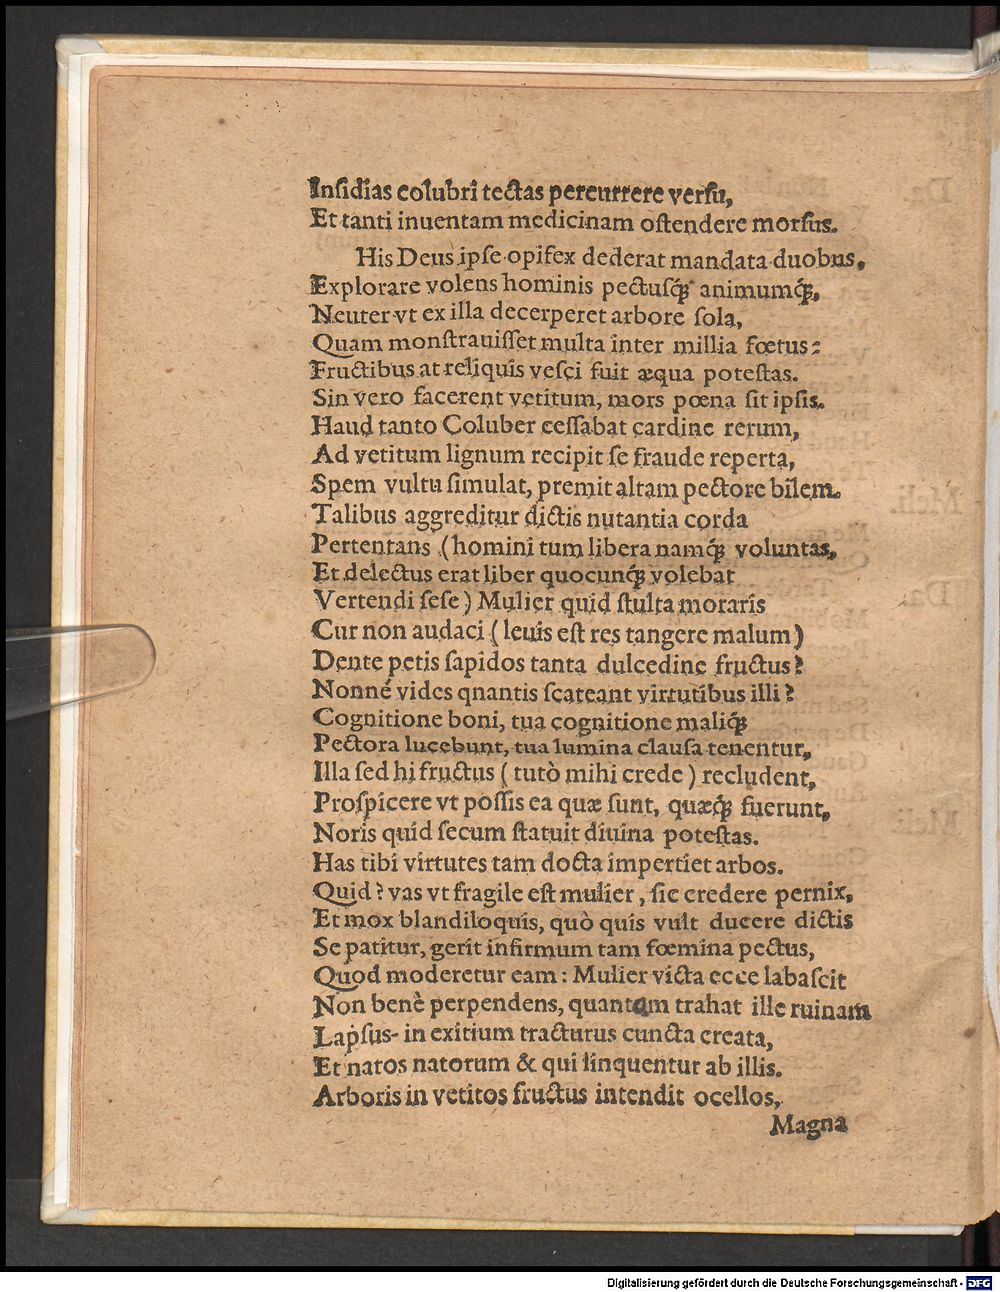 Insidias colubri tectas percurrere versu,
Et tanti inuentam medicinam ostendere morsus.
His Deus ipse opifex dederat mandata duobus,
Explorare volens hominis pectusq́; animumq́;,
Neuter vt ex illa decerperet arbore sola,
Quam monstrauisset multa inter millia fœtus:
Fructibus at reliquis vesci fuit æqua potestas.
Sin vero facerent vetitum, mors pœna sit ipsis.
Haud tanto Coluber cessabat cardine rerum,
Ad vetitum lignum recipit se fraude reperta,
Spem vultu simulat, premit altam pectore bilem.
Talibus aggreditur dictis nutantia corda
Pertentans (homini tum libera namq́; voluntas,
Et delectus erat liber quocunq́; volebat
Vertendi sese) Mulier quid stulta moraris
Cur non audaci (leuis est res tangere malum)
Dente petis sapidos tanta dulcedine fructus?
Nonné vides qnantis scateant virtutibus illi?
Cognitione boni, tua cognitione maliq́;
Pectora lucebunt, tua lumina clausa tenentur,
Illa sed hi fructus (tutò mihi crede) recludent,
Prospicere vt possis ea quæ sunt, quæq́; fuerunt,
Noris quid secum statuit diuina potestas.
Has tibi virtutes tam docta impertiet arbos.
Quid? vas vt fragile est mulier, sic credere pernix,
Et mox blandiloquis, quò quis vult ducere dictis
Se patitur, gerit infirmum tam fœmina pectus,
Quod moderetur eam: Mulier victa ecce labascit
Non benè perpendens, quantam trahat ille ruinam
Lapsus in exitium tracturus cuncta creata,
Et natos natorum & qui linquentur ab illis.
Arboris in vetitos fructus intendit ocellos,
Magna
Digitalisierung gefördert durch die Deutsche Forschungsgemeinschaft - DFG